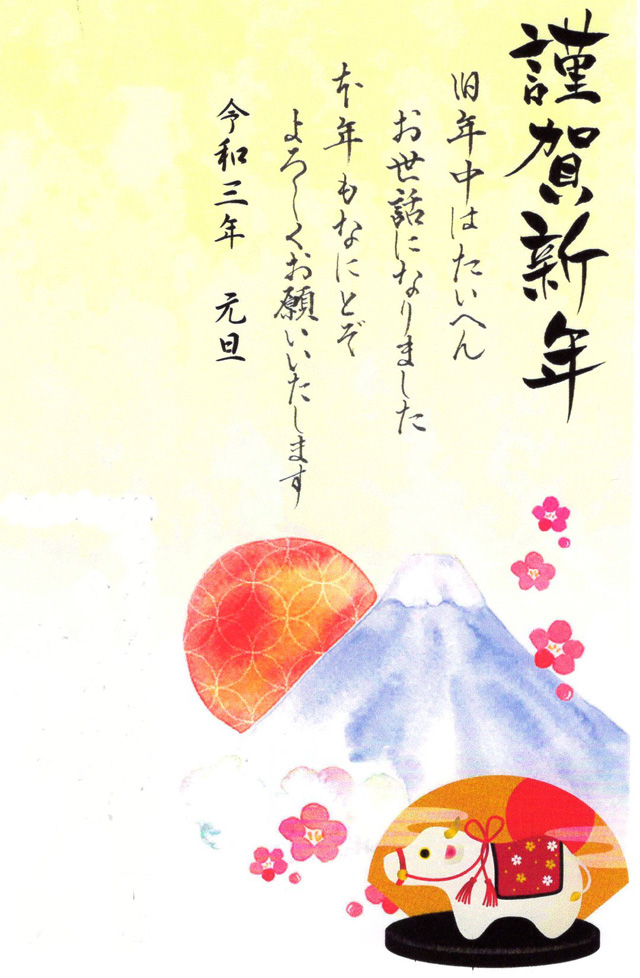 謹賀新年
旧年中はたいへん
お世話になりました
本年もなにとぞ
よろしくお願いいたします
令和三年 元旦